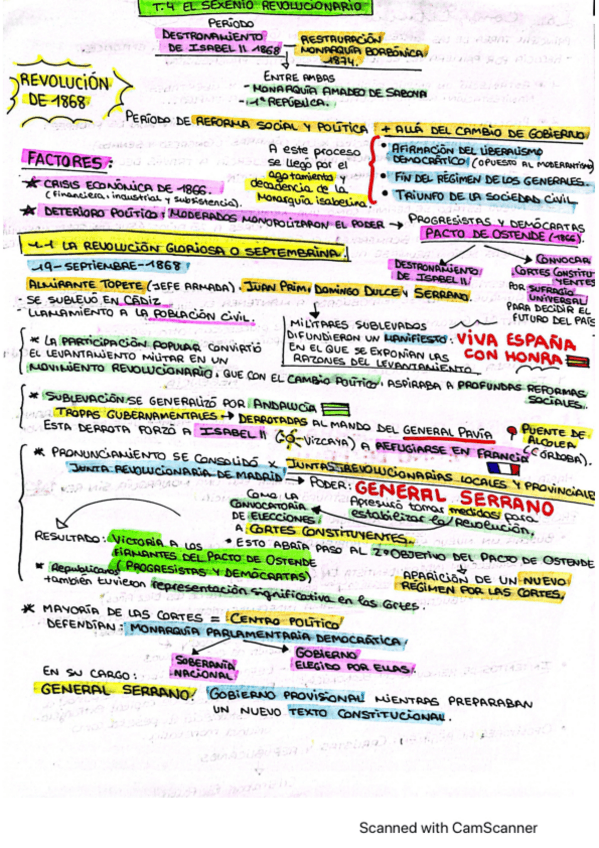 T.4 EL SEXENIO REVOLUCIONARIO
PERÍODO
DESTRONAMIENTO DE ISABEL II 1868
RESTAURACIÓN MONARQUÍA BORBÓNICA 1874.
ENTRE AMBAS
- MONARQUÍA AMADEO DE SABOYA
- 1ª REPÚBLICA.
REVOLUCIÓN
DE 1868
PERÍODO DE REFORMA SOCIAL Y POLÍTICA + ALLÁ DEL CAMBIO DE GOBIERNO
• AFIRMACIÓN DEL LIBERALISMO
DEMOCRÁTICO (OPUESTO AL MODERANTISMO)
• FIN DEL RÉGIMEN DE LOS GENERALES.
• TRIUNFO DE LA SOCIEDAD CIVIL
A este proceso
se llegó por el
agotamiento y
decadencia de la
Monarquía isabelina
FACTORES:
* CRISIS ECONÓMICA DE 1866.
(financiera, industrial y subsistencia).
* DETERIORO POLÍTICO: MODERADOS MONOPOLIZARON EL PODER → PROGRESISTAS Y DEMÓCRATAS
PACTO DE OSTENDE (1866).
DESTRONAMIENTO
DE ISABEL II
CONVOCAR
CORTES CONSTITU
YENTES
POR SUFRAGIO
UNIVERSAL
PARA DECIDIR EL
FUTURO DEL PAÍS
4.1 LA REVOLUCIÓN GLORIOSA O SEPTEMBRINA.
19-SEPTIEMBRE-1868
ALMIRANTE TOPETE (JEFE ARMADA), JUAN PRIM, DOMINGO DULCE Y SERRANO.
- SE SUBLEVÓ EN CÁDIZ
- LLAMAMIENTO A LA POBLACIÓN CIVIL.
MILITARES SUBLEVADOS
DIFUNDIERON UN MANIFIESTO:
EN EL QUE SE EXPONÍAN LAS
RAZONES DEL LEVANTAMIENTO
VIVA ESPAÑA
CON HONRA
* LA PARTICIPACIÓN POPULAR CONVIRTIÓ
EL LEVANTAMIENTO MILITAR EN UN
MOVIMIENTO REVOLUCIONARIO, QUE CON EL CAMBIO POLÍTICO, ASPIRABA A PROFUNDAS REFORMAS
SOCIALES.
* SUBLEVACIÓN SE GENERALIZÓ POR ANDALUCÍA
TROPAS GUBERNAMENTALES → DERROTADAS AL MANDO DEL GENERAL PAVÍA
PUENTE DE
ALCOLEA
(CÓRDOBA).
ESTA DERROTA FORZÓ A ISABEL II (-VIZCAYA) A REFUGIARSE EN FRANCIA
* PRONUNCIAMIENTO SE CONSOLIDÓ X JUNTAS REVOLUCIONARIAS LOCALES Y PROVINCIALES
JUNTA REVOLUCIONARIA DE MADRID → PODER: GENERAL SERRANO
Como LA
CONVOCATORIA
DE ELECCIONES
A CORTES CONSTITUYENTES.
Apresuró tomar medidas para
estabilizar la revolución,
RESULTADO: VICTORIA A LOS
FIRMANTES DEL PACTO DE OSTENDE
(PROGRESISTAS Y DEMÓCRATAS)
• ESTO ABRÍA PASO AL 2º OBJETIVO DEL PACTO DE OSTENDE
APARICIÓN DE UN NUEVO
RÉGIMEN POR LAS CORTES.
* Republicanos
también tuvieron representación significativa en las Cortes.
* MAYORÍA DE LAS CORTES = CENTRO POLÍTICO
DEFENDÍAN: MONARQUÍA PARLAMENTARIA DEMOCRÁTICA
SOBERANÍA
NACIONAL
GOBIERNO
ELEGIDO POR ELLAS.
EN SU CARGO:
GENERAL SERRANO: GOBIERNO PROVISIONAL MIENTRAS PREPARABAN
UN NUEVO TEXTO CONSTITUCIONAL.
Scanned with CamScanner